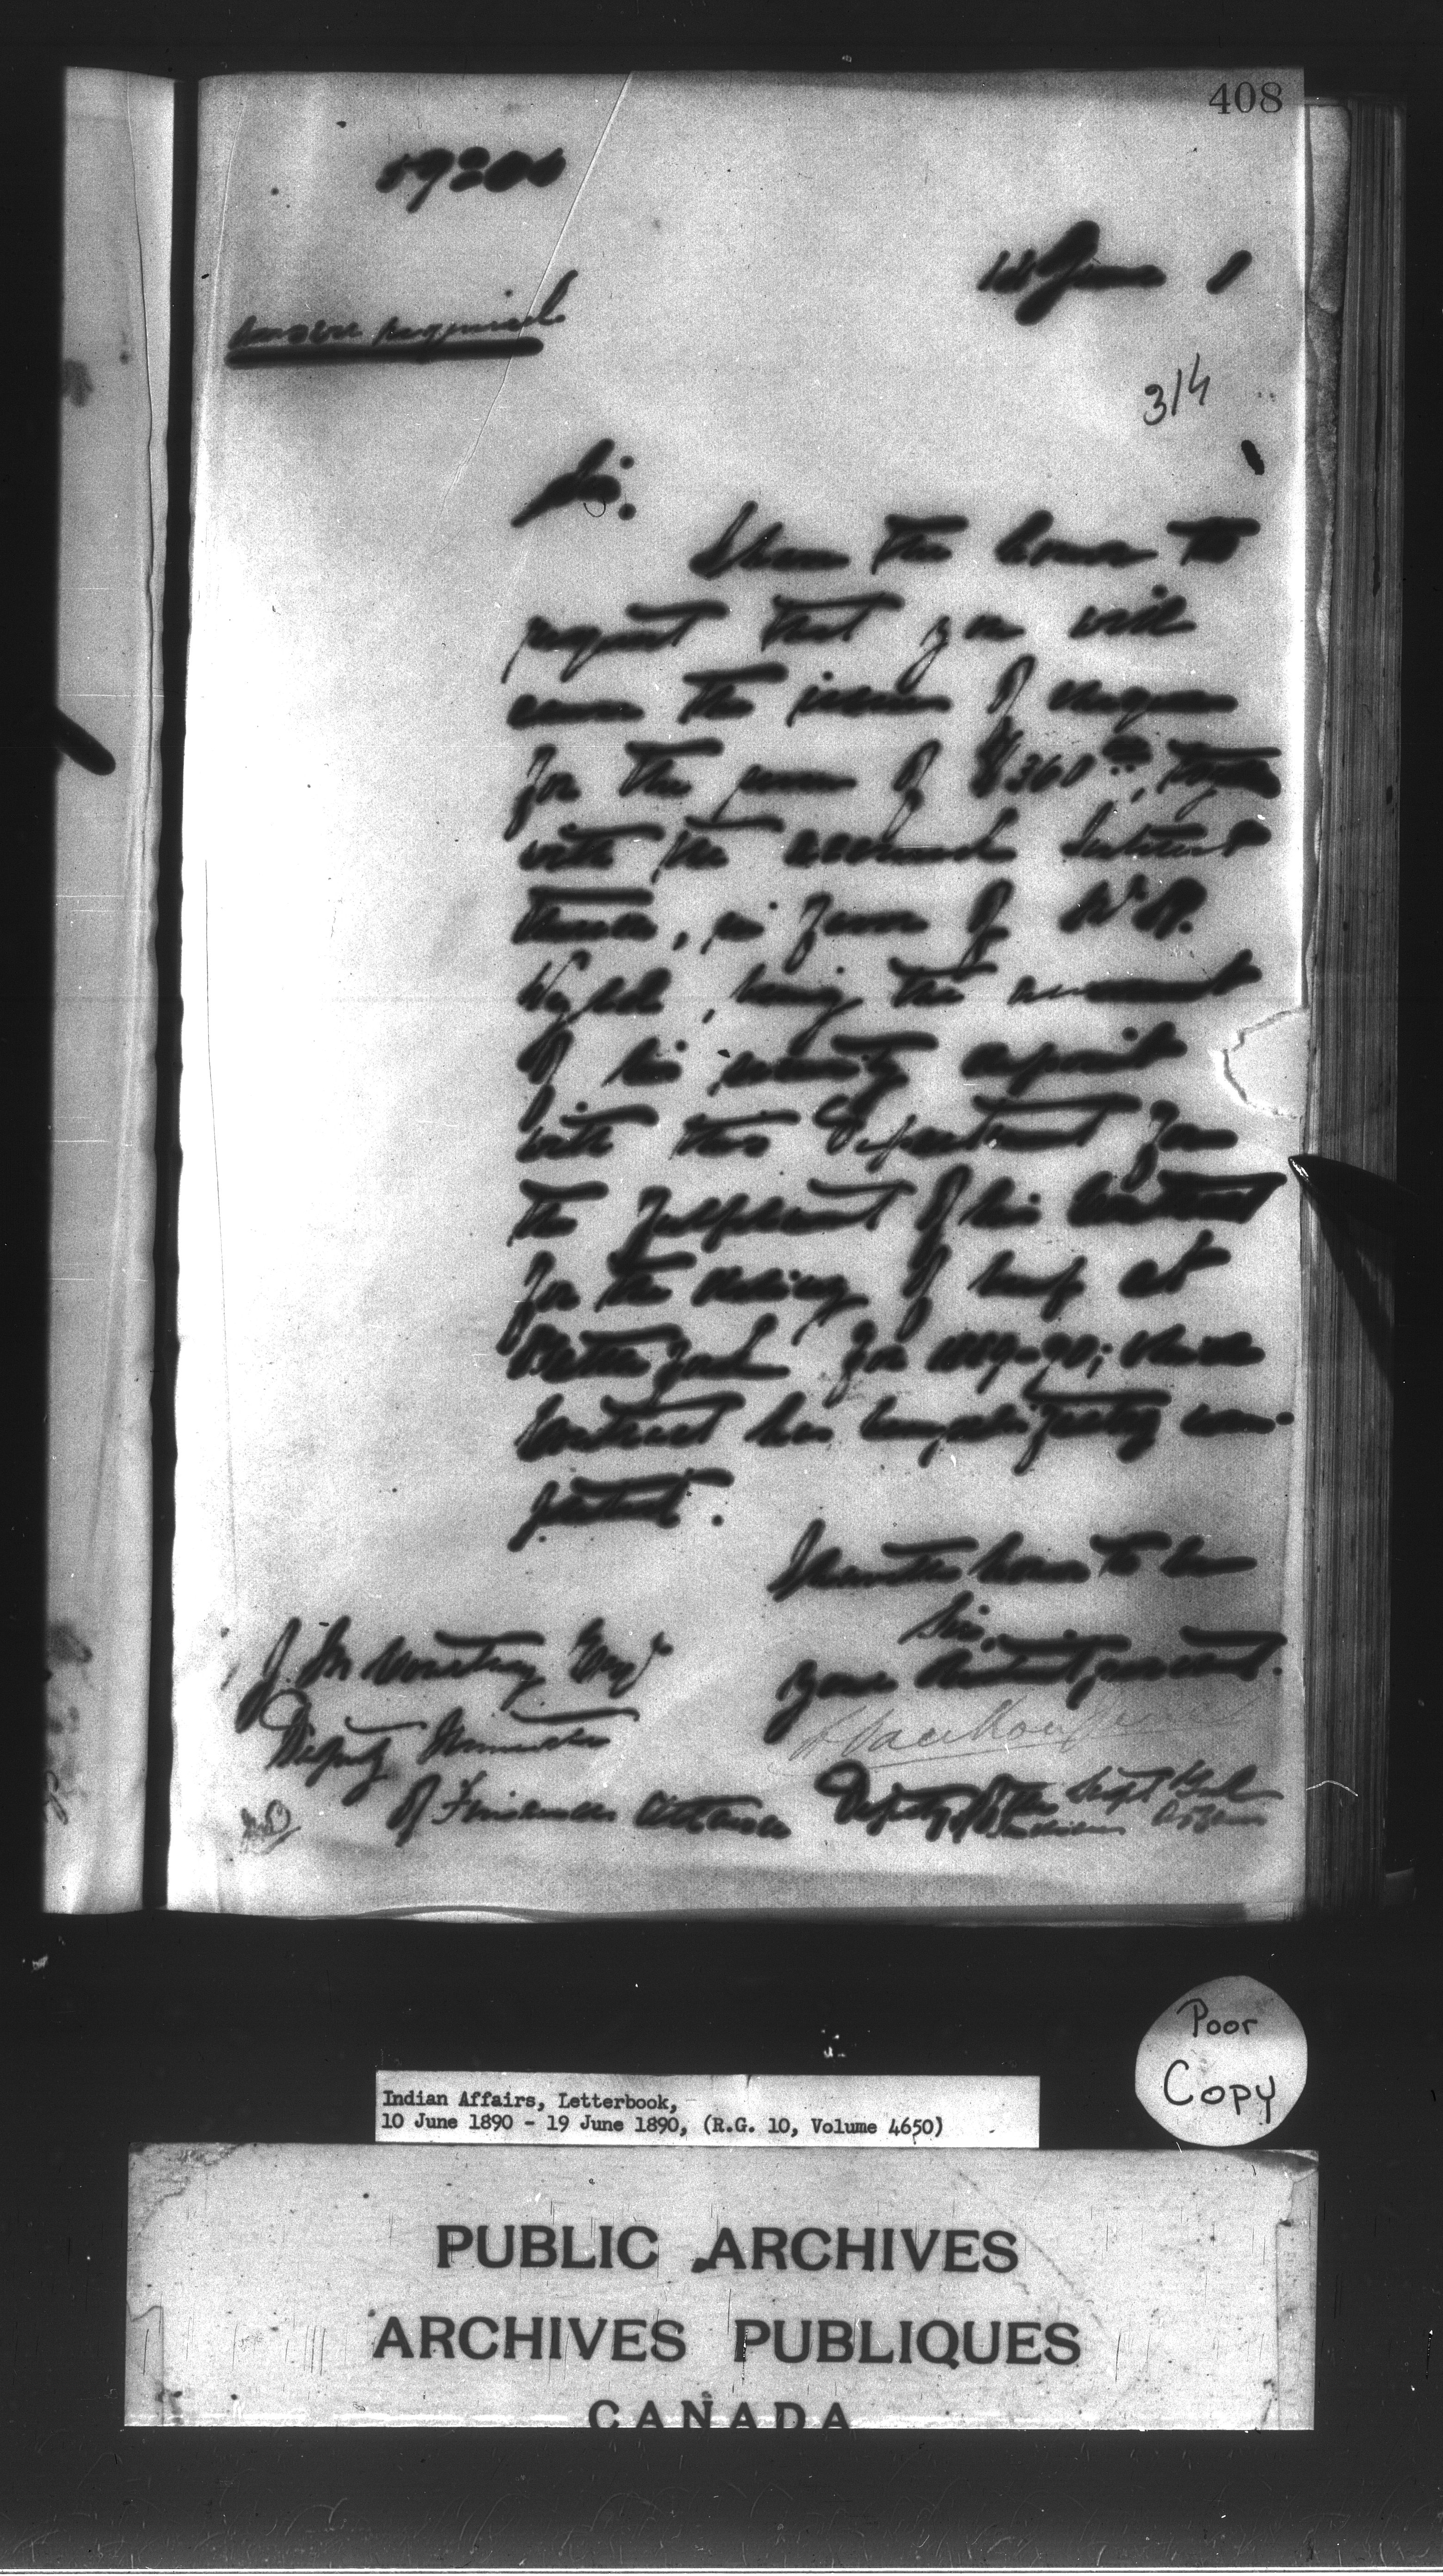 408
18 June 0
314
Sir:
I have the honor to
request that you will
cause the issue of cheque
for the sum of $360.00, together
with the accrued Interest
thereon, in favor of
being the amount
of his security deposit
with this Department for
the fulfilment of his Contract
for the delivery of beef at
Battleford for 1889-90;
Contract has been satisfactorily com-
pleted.
I have the honor to be
Sir,
Your obedient, servant.
J. M. Courtney Esqr
L. Vankoughnet
Deputy Minister
Deputy of the Supt Genl
of Finance Ottawa
Indian Affairs
Poor
Copy
Indian Affairs, Letterbook,
10 June 1890 - 19 June 1890, (R.G. 10, Volume 4650)
PUBLIC ARCHIVES
ARCHIVES PUBLIQUES
CANADA